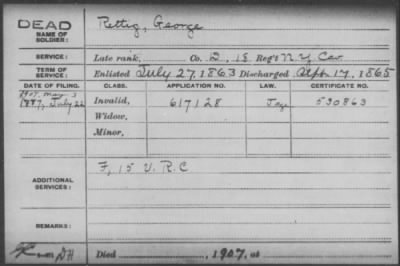 DEAD
NAME OF SOLDIER: Rettig, George
SERVICE: Late rank, Co. D, 15 Reg't N.Y. Cav
TERM OF SERVICE: Enlisted July 27, 1863 Discharged Sept. 17, 1865
DATE OF FILING. CLASS. APPLICATION NO. LAW. CERTIFICATE NO.
1907, May 3
1887, July 22 Invalid, 617128 530863
Widow,
Minor,
F, 15 V.R.C
ADDITIONAL SERVICES:
REMARKS:
Died , 1907, at